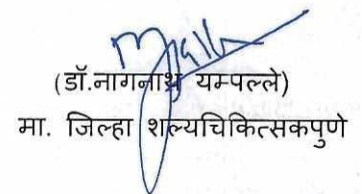 (डॉ.नागनाथ यम्पल्ले)
मा. जिल्हा शल्यचिकित्सकपुणे